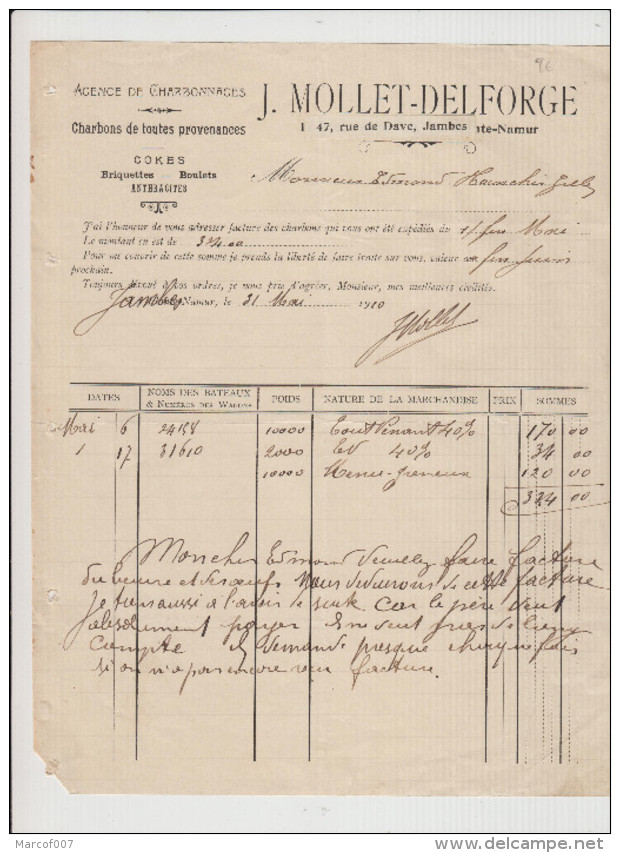 9€
AGENCE DE CHARBONNAGES
Charbons de toutes provenances
COKES
Briquettes Boulets
ANTHRACITES
J. MOLLET-DELFORGE
1 47, rue de Dave, Jambes ste-Namur
Monsieur Edmond
J'ai l'honneur de vous adresser facture des charbons qui vous ont été expédiés du 1/ fin Mai
Le montant en est de 324.00
Pour me couvrir de cette somme je prends la liberté de faire traite sur vous, valeur au fin juin
prochain.
Toujours dévoué à vos ordres, je vous prie d'agréer, Monsieur, mes meilleures civilités.
Jambes Namur, le 31 Mai 1910
JMollet
DATES NOMS DES BATEAUX & NUMÉROS DES WAGONS POIDS NATURE DE LA MARCHANDISE PRIX SOMMES
Mai 6 24158 10000 Tout Venant 40% 170 00
1 17 31610 2000 TV 40% 34 00
10000 Menu 120 00
324 00
Mon cher Edmond Veuillez faire facture
du beurre et des oeufs Nous deduirons de cette facture
Je tiens aussi à l'avoir de suite car le père veut
absolument payer Il ne veut pas de
compte Il demande presque chaque fois
si on n'a pas encore reçu facture.
Marcof007
DELCAMPE.NET